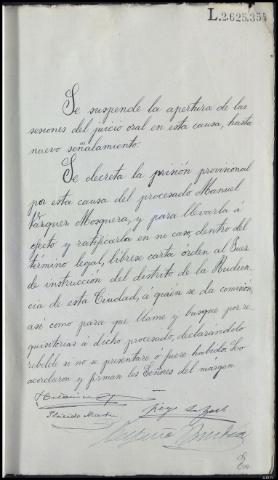 L.2.625.354
Se suspende la apertura de las
sesiones del juicio oral en esta causa, hasta
nuevo señalamiento.
Se decreta la prisión provisional
por esta causa del procesado Manuel
Vázquez Mosquera, y para llevarla á
efecto y ratificarla en su caso, dentro del
término legal, líbrese carta órden al Juez
de instrucción del distrito de la Audien-
cia de esta Ciudad, á quién se da comisión,
así como para que llame y busque por re-
quisitorias á dicho procesado, declarándolo
rebelde si no se presentare ó fuere habido. Lo
acordaron y firman los Señores del margen.